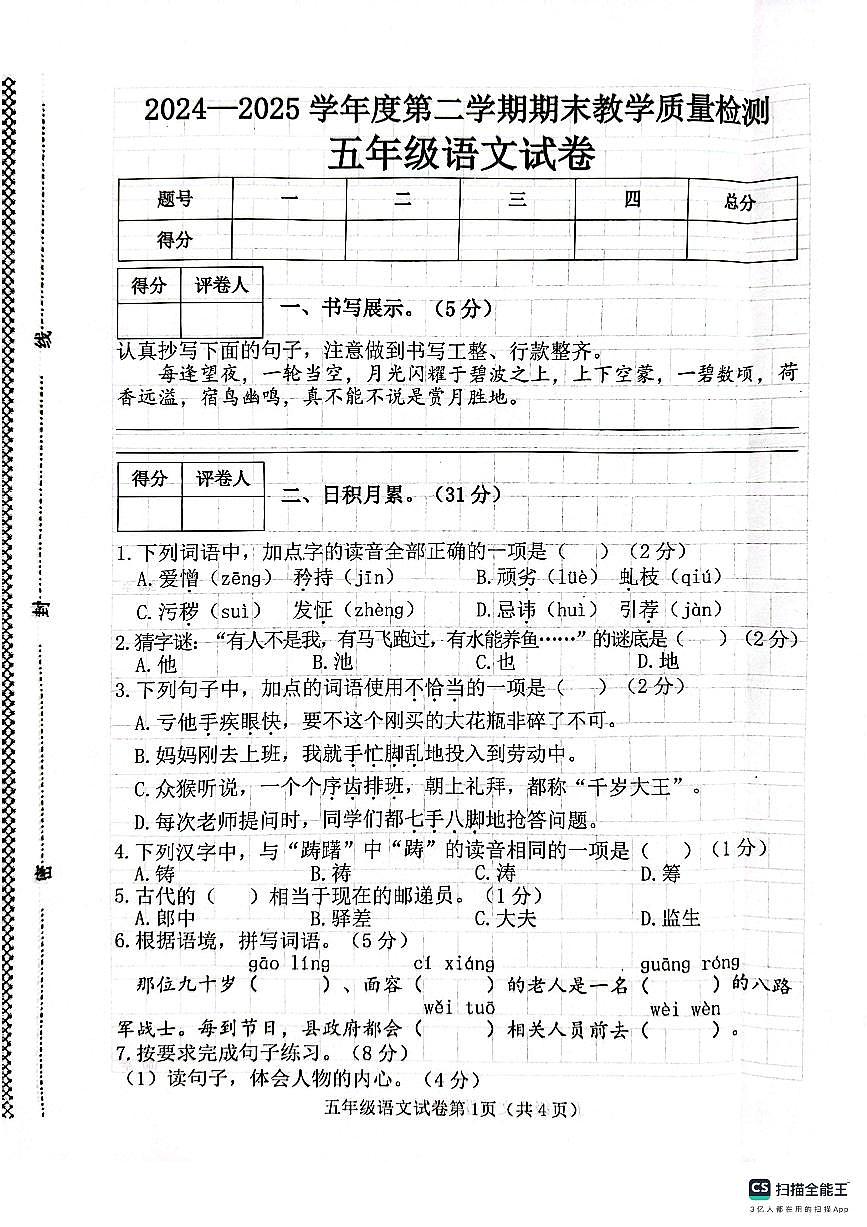 2024—2025学年度第二学期期末教学质量检测
五年级语文试卷
题号 一 二 三 四 总分
得分
得分 评卷人
一、书写展示。(5分)
认真抄写下面的句子，注意做到书写工整、行款整齐。
每逢望夜，一轮当空，月光闪耀于碧波之上，上下空蒙，一碧数顷，荷
香远溢，宿鸟幽鸣，真不能不说是赏月胜地。
得分 评卷人
二、日积月累。(31分)
1.下列词语中，加点字的读音全部正确的一项是（ ）(2分)
A.爱憎(zēng) 矜持(jīn) B.顽劣(lüè) 虬枝(qiú)
C.污秽(suì) 发怔(zhèng) D.忌讳(huì) 引荐(jàn)
2.猜字谜：“有人不是我，有马飞跑过，有水能养鱼……”的谜底是（ ）(2分)
A.他 B.池 C.也 D.地
3.下列句子中，加点的词语使用不恰当的一项是（ ）(2分)
A.亏他手疾眼快，要不这个刚买的大花瓶非碎了不可。
B.妈妈刚去上班，我就手忙脚乱地投入到劳动中。
C.众猴听说，一个个序齿排班，朝上礼拜，都称“千岁大王”。
D.每次老师提问时，同学们都七手八脚地抢答问题。
4.下列汉字中，与“踌躇”中“踌”的读音相同的一项是（ ）(1分)
A.铸 B.祷 C.涛 D.筹
5.古代的（ ）相当于现在的邮递员。(1分)
A.郎中 B.驿差 C.大夫 D.监生
6.根据语境，拼写词语。(5分)
gāo líng cí xiáng guāng róng
那位九十岁（ ）、面容（ ）的老人是一名（ ）的八路
wěi tuō wèi wèn
军战士。每到节日，县政府都会（ ）相关人员前去（ ）。
7.按要求完成句子练习。(8分)
(1)读句子，体会人物的内心。(4分)
五年级语文试卷第1页（共4页）
线
封
密
CS 扫描全能王
3亿人都在用的扫描App